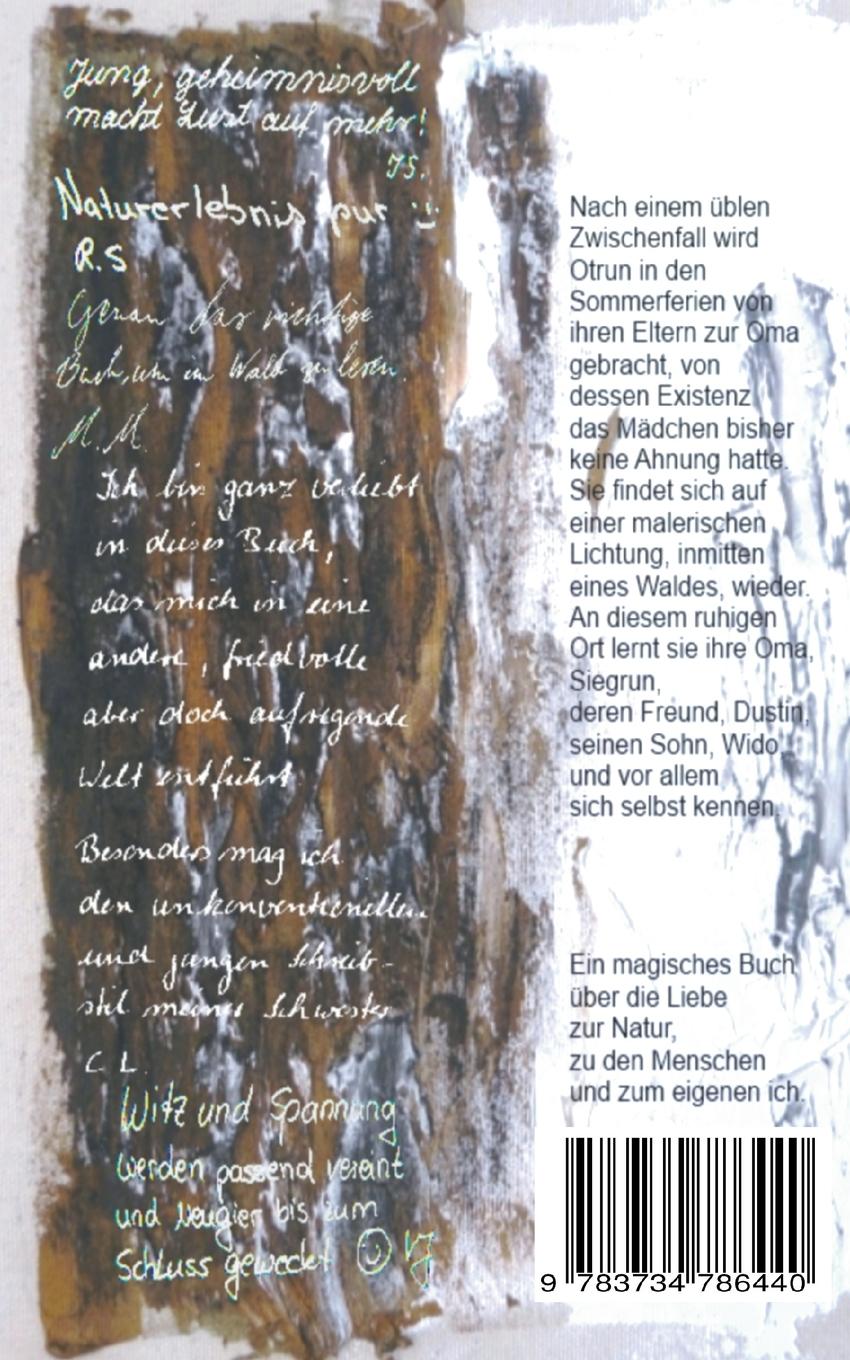 Jung, geheimnisvoll
macht Lust auf mehr!
JS.
Naturerlebnis pur :)
R.S
Genau das richtige
Buch, um im Wald zu lesen.
M.M.
Ich bin ganz verliebt
in dieses Buch,
das mich in eine
andere, friedvolle
aber doch aufregende
Welt entführt
Besonders mag ich
den unkonventionellen
und jungen Schreib-
stil meiner Schwester
C L.
Witz und Spannung
werden passend vereint
und Neugier bis zum
Schluss geweckt ☺ VJ
Nach einem üblen
Zwischenfall wird
Otrun in den
Sommerferien von
ihren Eltern zur Oma
gebracht, von
dessen Existenz
das Mädchen bisher
keine Ahnung hatte.
Sie findet sich auf
einer malerischen
Lichtung, inmitten
eines Waldes, wieder.
An diesem ruhigen
Ort lernt sie ihre Oma,
Siegrun,
deren Freund, Dustin,
seinen Sohn, Wido,
und vor allem
sich selbst kennen.
Ein magisches Buch
über die Liebe
zur Natur,
zu den Menschen
und zum eigenen ich.
9 783734 786440